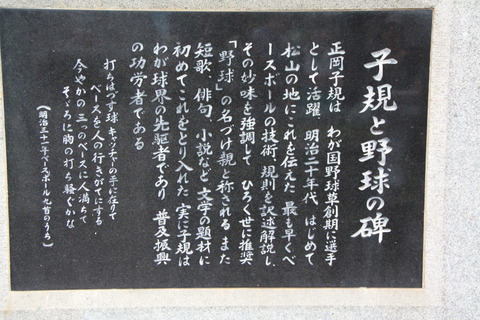 子規と野球の碑
正岡子規は わが国野球草創期に選手
として活躍 明治二十年代 はじめて
松山の地にこれを伝えた 最も早くベ
ースボールの技術、規則を訳述解説し、
その妙味を強調して ひろく世に推奨
「野球」の名づけ親と称される また
短歌、俳句、小説など 文学の題材に
初めてこれをとり入れた 実に子規は
わが球界の先駆者であり 普及振興
の功労者である
打ちはづす球キャッチャーの手に在りて
ベースを人の行きがてにする
今やかの三つのベースに人満ちて
そゞろに胸の打ち騒ぐかな
(明治三十一年ベースボール九首のうち)